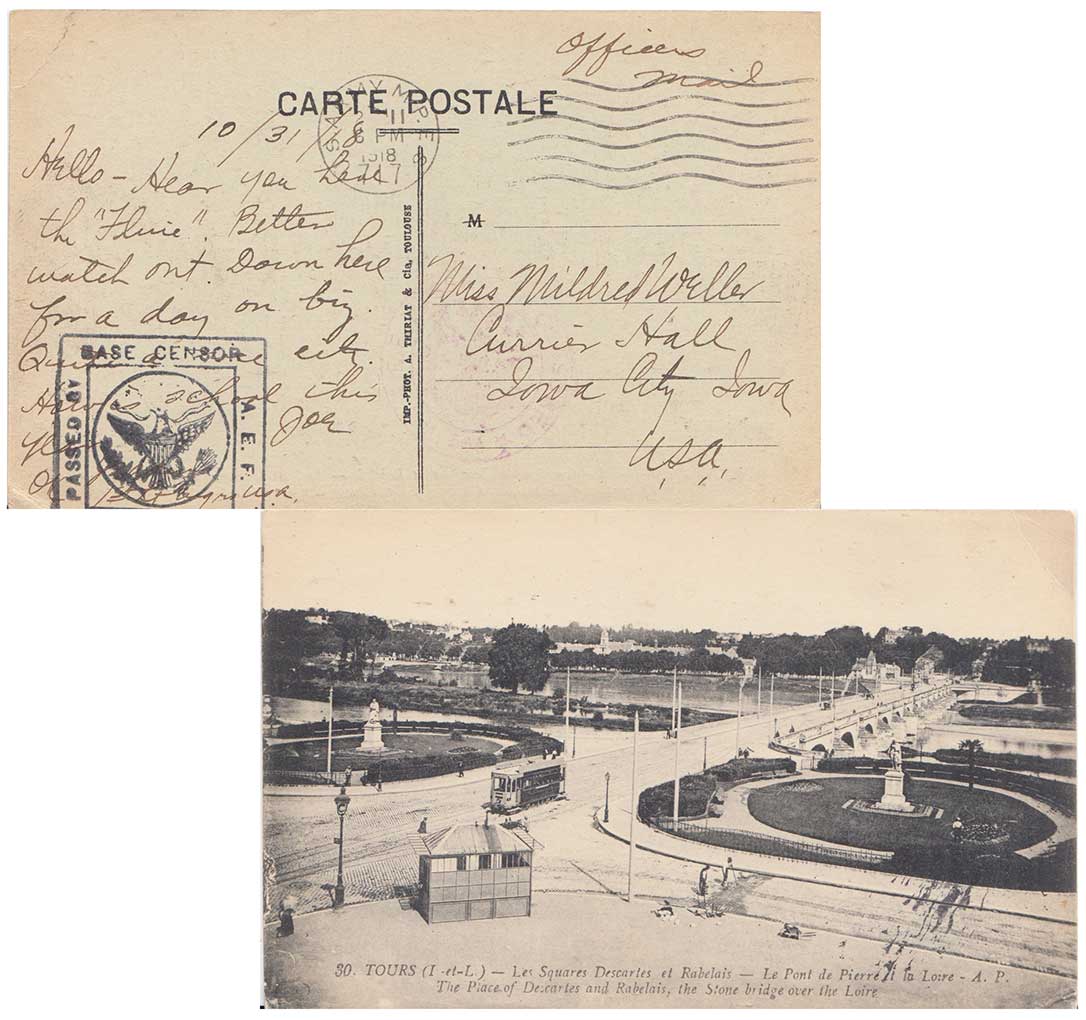 Officers
Mail
CARTE POSTALE
10/31/18
1918
717
Hello - Hear you have
the "Fluie". Better
watch out. Down here
for a day on biz.
Quite a nice city.
How is school this
year Joe
IMP.-PHOT. A. THIRIAT & Cie, TOULOUSE
M
Miss Mildred Weller
Currier Hall
Iowa City Iowa
U.S.A.
PASSED BY
BASE CENSOR
A. E. F.
30. TOURS (I-et-L.) — Les Squares Descartes et Rabelais — Le Pont de Pierre et la Loire - A. P.
The Place of Descartes and Rabelais, the Stone bridge over the Loire